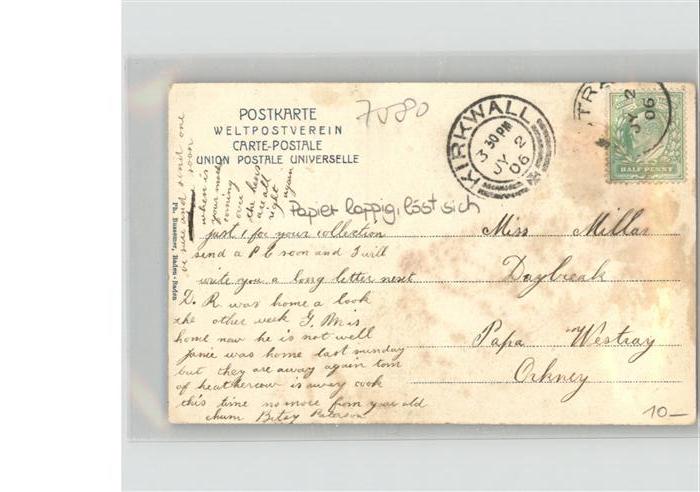 POSTKARTE
WELTPOSTVEREIN
CARTE-POSTALE
UNION POSTALE UNIVERSELLE
7580
KIRKWALL
3 30 PM
JY 2
06
JY 2
06
HALF PENNY
Papier lappig, löst sich
be sure and send one soon
when is
your mare
coming
over
the boys
are all
right
again
Ph. Bussemer, Baden-Baden
just 1 for your collection
send a P C soon and I will
write you a long letter next
D. R was home a look
the other week G. M is
home now he is not well
Janie was home last sunday
but they are away again tom
of heathercow is away cook
this time no more from your old
chum Betsy Paterson
Miss Millar
Daybreak
Papa Westray
Orkney
10—